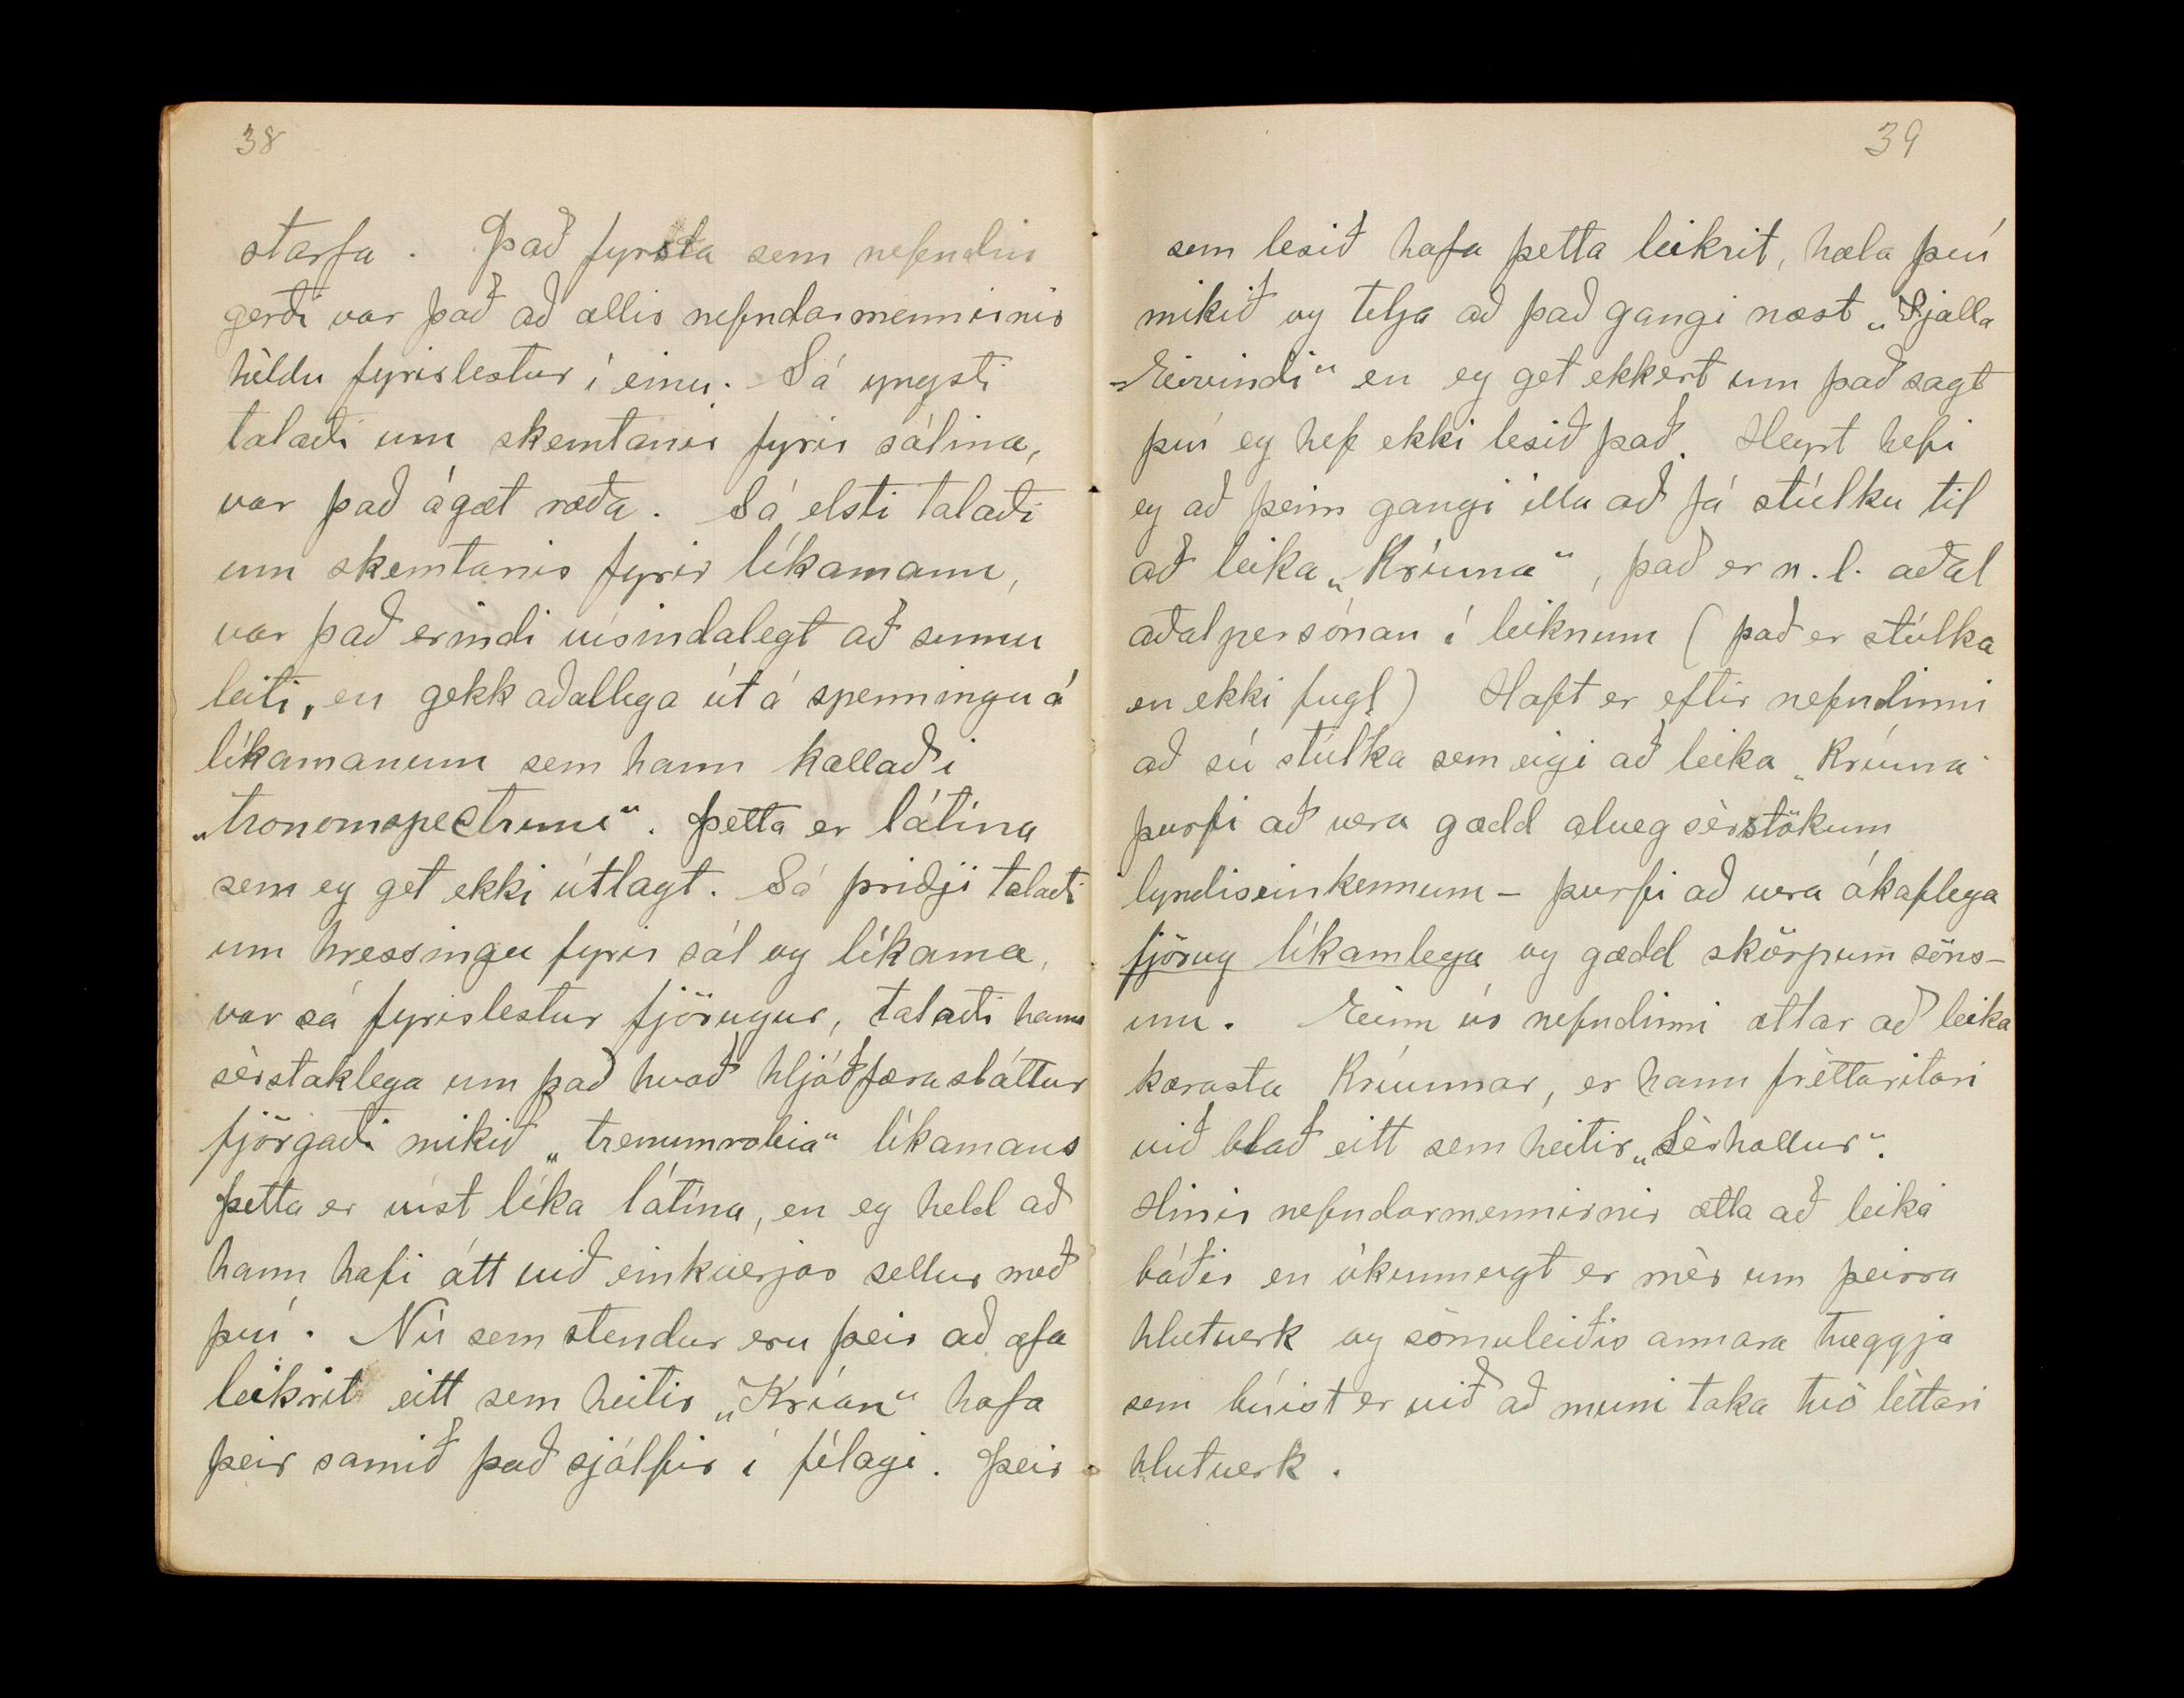 38
starfa. Það fyrsta sem nefndin
gerði var það að allir nefndarmennirnir
héldu fyrirlestur í einu. Sá yngsti
talaði um skemtanir fyrir sálina,
var það ágæt ræða. Sá elsti talaði
um skemtanir fyrir líkamann,
var það erindi vísindalegt að sumu
leiti, en gekk aðallega út á spenningu á
líkamanum sem hann kallaði
„tronomspectrumi“. Þetta er látína
sem eg get ekki útlagt. Sá þriðji talaði
um hressingu fyrir sál og líkama,
var sá fyrirlestur fjörugur, talaði hann
sérstaklega um það hvað hljóðfærasláttur
fjörgaði mikið „trenumrobia“ líkamans
Þetta er víst líka látína, en eg held að
hann hafi átt við einkverjar sellur með
því. Nú sem stendur eru þeir að æfa
leikrit eitt sem heitir „Krían“ hafa
þeir samið það sjálfir í félagi. Þeir
39
sem lesið hafa þetta leikrit, hæla því
mikið og telja að það gangi næst „Fjalla
-Eivindi“ en eg get ekkert um það sagt
því eg hef ekki lesið það. Heyrt hefi
eg að þeim gangi illa að fá stúlku til
að leika „Kríuna“, það er n.l. aðal
aðalpersónan í leiknum (það er stúlka
en ekki fugl) Haft er eftir nefndinni
að sú stúlka sem eigi að leika „Kríuna“
þurfi að vera gædd alveg sérstökum
lyndiseinkennum – þurfi að vera ákaflega
fjörug líkamlega og gædd skörpum söns-
um. Einn úr nefndinni ætlar að leika
kærasta Kríunnar, er hann fréttaritari
við blað eitt sem heitir „Sérhallur“.
Hinir nefndarmennirnir ætla að leika
báðir en ókunnugt er mér um þeirra
hlutverk og sömuleiðis annara tveggja
sem búist er við að muni taka tvö léttari
hlutverk.